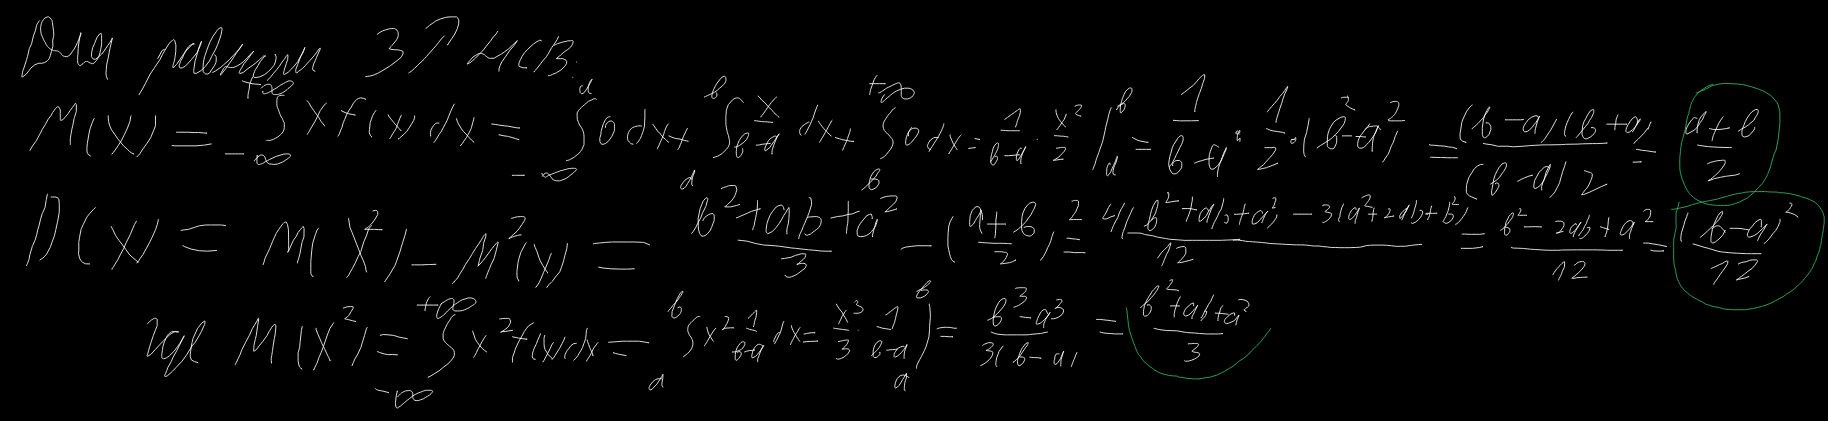 Для равном ЗР НСВ:
M(X) = ∫_{-∞}^{+∞} x f(x) dx = ∫_{-∞}^{a} 0 dx + ∫_{a}^{b} x/(b-a) dx + ∫_{b}^{+∞} 0 dx = 1/(b-a) · x²/2 |_{a}^{b} = 1/(b-a) · 1/2 · (b²-a²) = (b-a)(b+a)/((b-a)2) = (a+b)/2
D(X) = M(X²) - M²(X) = (b²+ab+a²)/3 - ((a+b)/2)² = (4(b²+ab+a²) - 3(a²+2ab+b²))/12 = (b²-2ab+a²)/12 = (b-a)²/12
где M(X²) = ∫_{-∞}^{+∞} x² f(x) dx = ∫_{a}^{b} x² 1/(b-a) dx = x³/3 · 1/(b-a) |_{a}^{b} = (b³-a³)/(3(b-a)) = (b²+ab+a²)/3